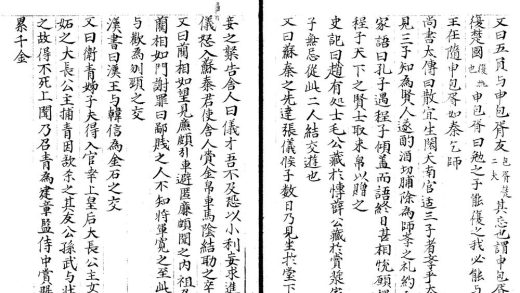 又曰五員与申包胥友其亡也謂申包
復楚國申包胥曰勉之子能復之我必能与
王在隨申包胥如秦乞師
尚書大傳曰散宜生閎夭南宫适三子者學乎
見三子知為賢人遂酌酒切脯除為師李之礼約
家語曰孔子遇程子傾盖而語終日甚相悅顧謂
程子天下之賢士取束帛以贈之
史記曰趙有処士毛公藏於博薛公藏於賣漿
子無忌從此二人結交遊也
又曰蘇秦之先達張儀候子數日乃見坐於堂下
妾之禁舍人曰儀才吾不及恐以小利妄求進
儀愁入蘇秦君使舍人賫金帛車馬陰結勒之
又曰藺相如望見廉頗引車避匿廉頗聞之内袒
藺相如門謝罪曰鄙賤之人不知將軍寬之至此
与歡為刎頸之交
漢書曰漢王与韓信為金石之交
又曰衛青姊子夫得入宫幸上皇后大長公主文
妬之大長公主捕青因欲杀之其友公孫
之故得不死上聞乃召青為建章監侍中賞賜
累千金